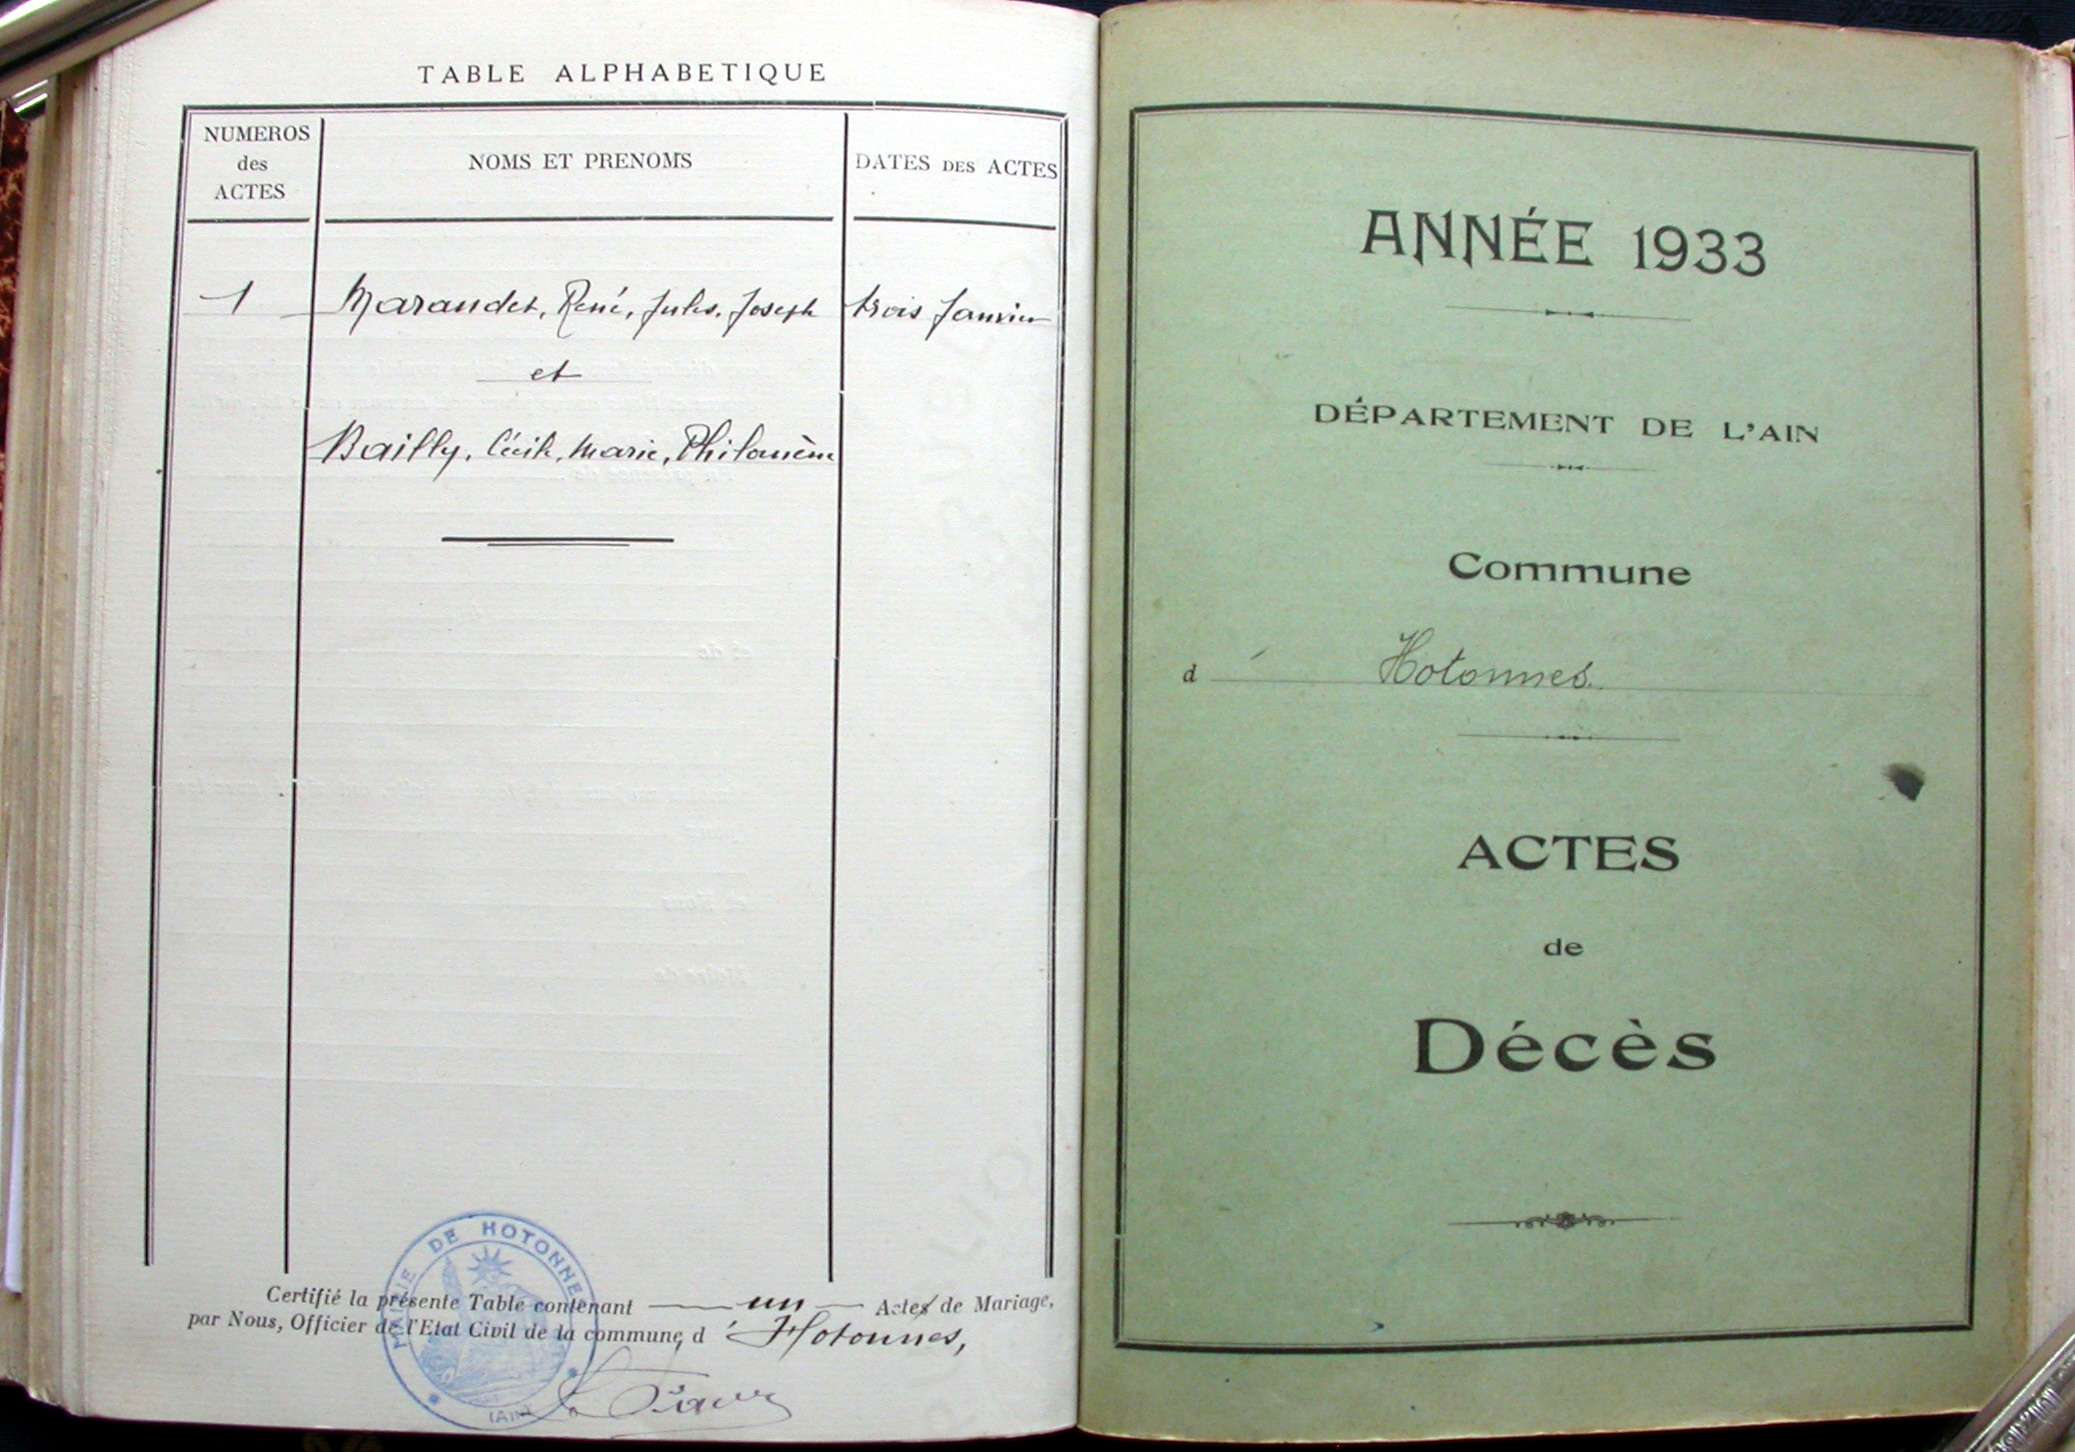 TABLE ALPHABETIQUE
NUMEROS
des
ACTES
NOMS ET PRENOMS
DATES DES ACTES
1 Marandet, René, Jules, Joseph trois Janvier
et
Bailly, Cécile, Marie, Philomène
MAIRIE DE HOTONNES
(AIN)
Certifié la présente Table contenant un Actes de Mariage,
par Nous, Officier de l'Etat Civil de la commune d'Hotonnes,
ANNÉE 1933
DÉPARTEMENT DE L'AIN
Commune
d'Hotonnes
ACTES
de
Décès